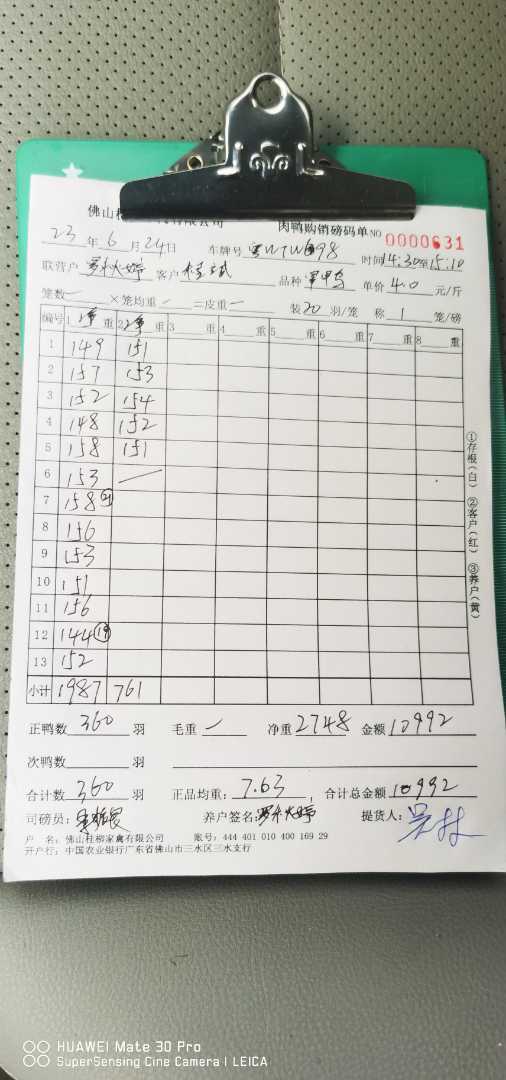 佛山桂 有限公司 肉鸭购销磅码单 NO 0000631
23 年 6 月 24 日 车牌号 时间 14:30至15:10
联营户 客户 品种 单价 4.0 元/斤
笼数 一 ×笼均重 一 =皮重 一 装 20 羽/笼 称 1 笼/磅
编号 1 净 重 2 净 重 3 重 4 重 5 重 6 重 7 重 8 重
1 149 151
2 157 153
3 152 154
4 148 152
5 158 151
6 153 —
7 158 21
8 156
9 153
10 151
11 156
12 144 19
13 152
小计 1987 761
正鸭数 360 羽 毛重 一 净重 2748 金额 10992
次鸭数 羽
合计数 360 羽 正品均重: 7.63 , 合计总金额 10992
司磅员: 养户签名: 提货人:
户 名: 佛山桂柳家禽有限公司 账号: 444 401 010 400 169 29
开户行: 中国农业银行广东省佛山市三水区三水支行
①存根(白) ②客户(红) ③养户(黄)
HUAWEI Mate 30 Pro
SuperSensing Cine Camera | LEICA